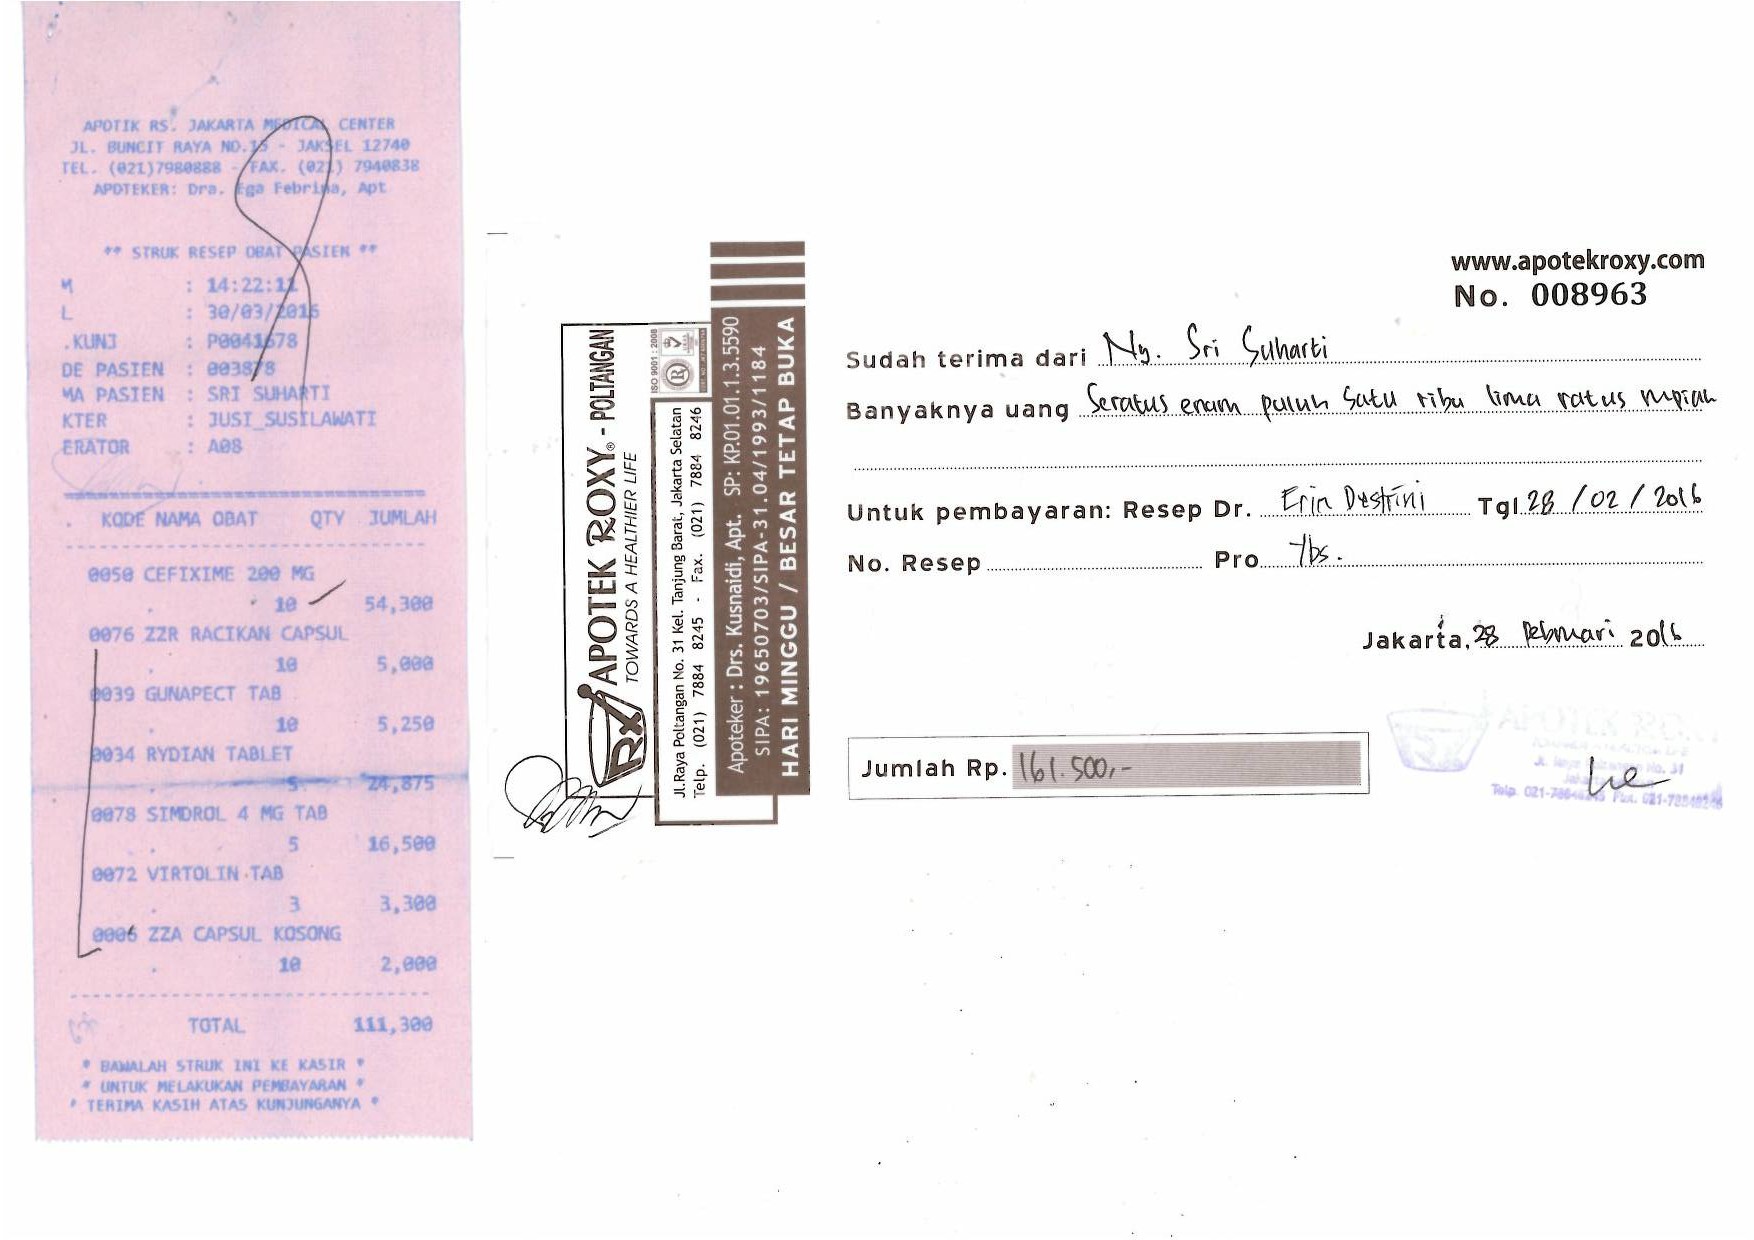 APOTIK RS. JAKARTA MEDICAL CENTER
JL. BUNCIT RAYA NO.15 - JAKSEL 12740
TEL. (021)7980888 - FAX. (021) 7940838
APOTEKER: Dra. Ega Febrina, Apt
** STRUK RESEP OBAT PASIEN **
M : 14:22:11
L : 30/03/2016
.KUNJ : P0041678
DE PASIEN : 003878
MA PASIEN : SRI SUHARTI
KTER : JUSI_SUSILAWATI
ERATOR : A08
. KODE NAMA OBAT QTY JUMLAH
0050 CEFIXIME 200 MG
. 10 54,300
0076 ZZR RACIKAN CAPSUL
. 10 5,000
0039 GUNAPECT TAB
. 10 5,250
0034 RYDIAN TABLET
. 5 24,875
0078 SIMDROL 4 MG TAB
. 5 16,500
0072 VIRTOLIN TAB
. 3 3,300
0006 ZZA CAPSUL KOSONG
. 10 2,000
TOTAL 111,300
* BAWALAH STRUK INI KE KASIR *
* UNTUK MELAKUKAN PEMBAYARAN *
* TERIMA KASIH ATAS KUNJUNGANYA *
APOTEK ROXY® - POLTANGAN
TOWARDS A HEALTHIER LIFE
ISO 9001 : 2008
Jl.Raya Poltangan No. 31 Kel. Tanjung Barat, Jakarta Selatan
Telp. (021) 7884 8245 - Fax. (021) 7884 8246
Apoteker : Drs. Kusnaidi, Apt. SP: KP.01.01.1.3.5590
SIPA: 19650703/SIPA-31.04/1993/1184
HARI MINGGU / BESAR TETAP BUKA
www.apotekroxy.com
No. 008963
Sudah terima dari Ny. Sri Suharti
Banyaknya uang Seratus enam puluh satu ribu lima ratus rupiah
Untuk pembayaran: Resep Dr. Erin Destrini Tgl 28 / 02 / 2016
No. Resep Pro Tbs.
Jakarta, 28 Februari 2016
Jumlah Rp. 161.500,-
APOTEK ROXY